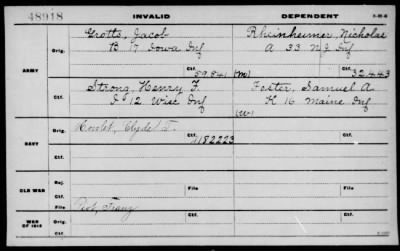 48918 INVALID DEPENDENT
Orig. Grotts, Jacob Rheinheimer, Nicholas
B 17 Iowa Inf A 33 N.J. Inf
ARMY Ctf. 59,841 (M) Ctf. 32,443
Strong, Henry F. Foster, Samuel A.
Ctf. D 12 Wisc Inf K 16 Maine Inf
(W)
Orig. Howlet, Clyde T. Ctf.
182223
NAVY
Ctf.
OLD WAR Rej. File File
Ctf.
WAR OF 1812 Orig. Franz Ctf. File
Ctf.